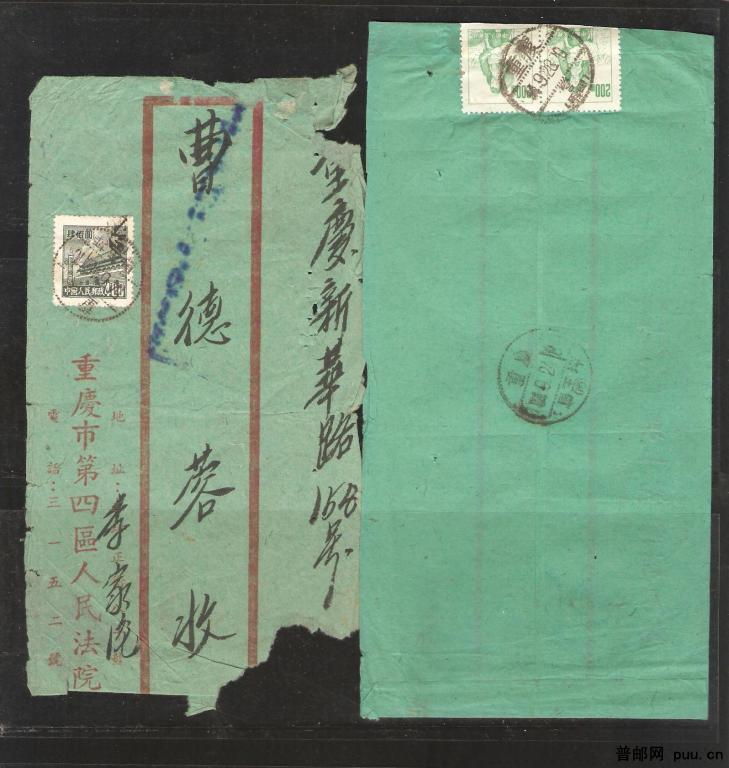 重慶新華路158号
曹德蓉收
地址:李家沱
重慶市第四區人民法院
電話:三一五二號
肆佰圓
中国人民郵政
200
200
重慶
重慶
普邮网 puu.cn